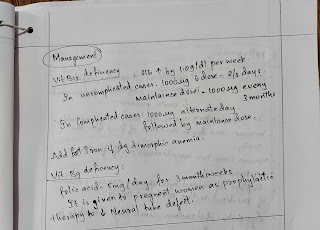 Management
Vit B12 deficiency → Hb ↑ by 1.0g/dl per week
In uncomplicated cases: 1000µg 6 dose - 2/3 days.
Maintaince dose: - 1000µg every
3 months
In Complicated cases: 1000µg alternate day
followed by maintance dose.
Add Iron, if dimorphic anemia.
Vit. B9 deficiency:
Folic acid - 5mg/day. for 3 weeks
It is given to pregnent women as prophylactic
therapy to ↓ Neural tube defect.